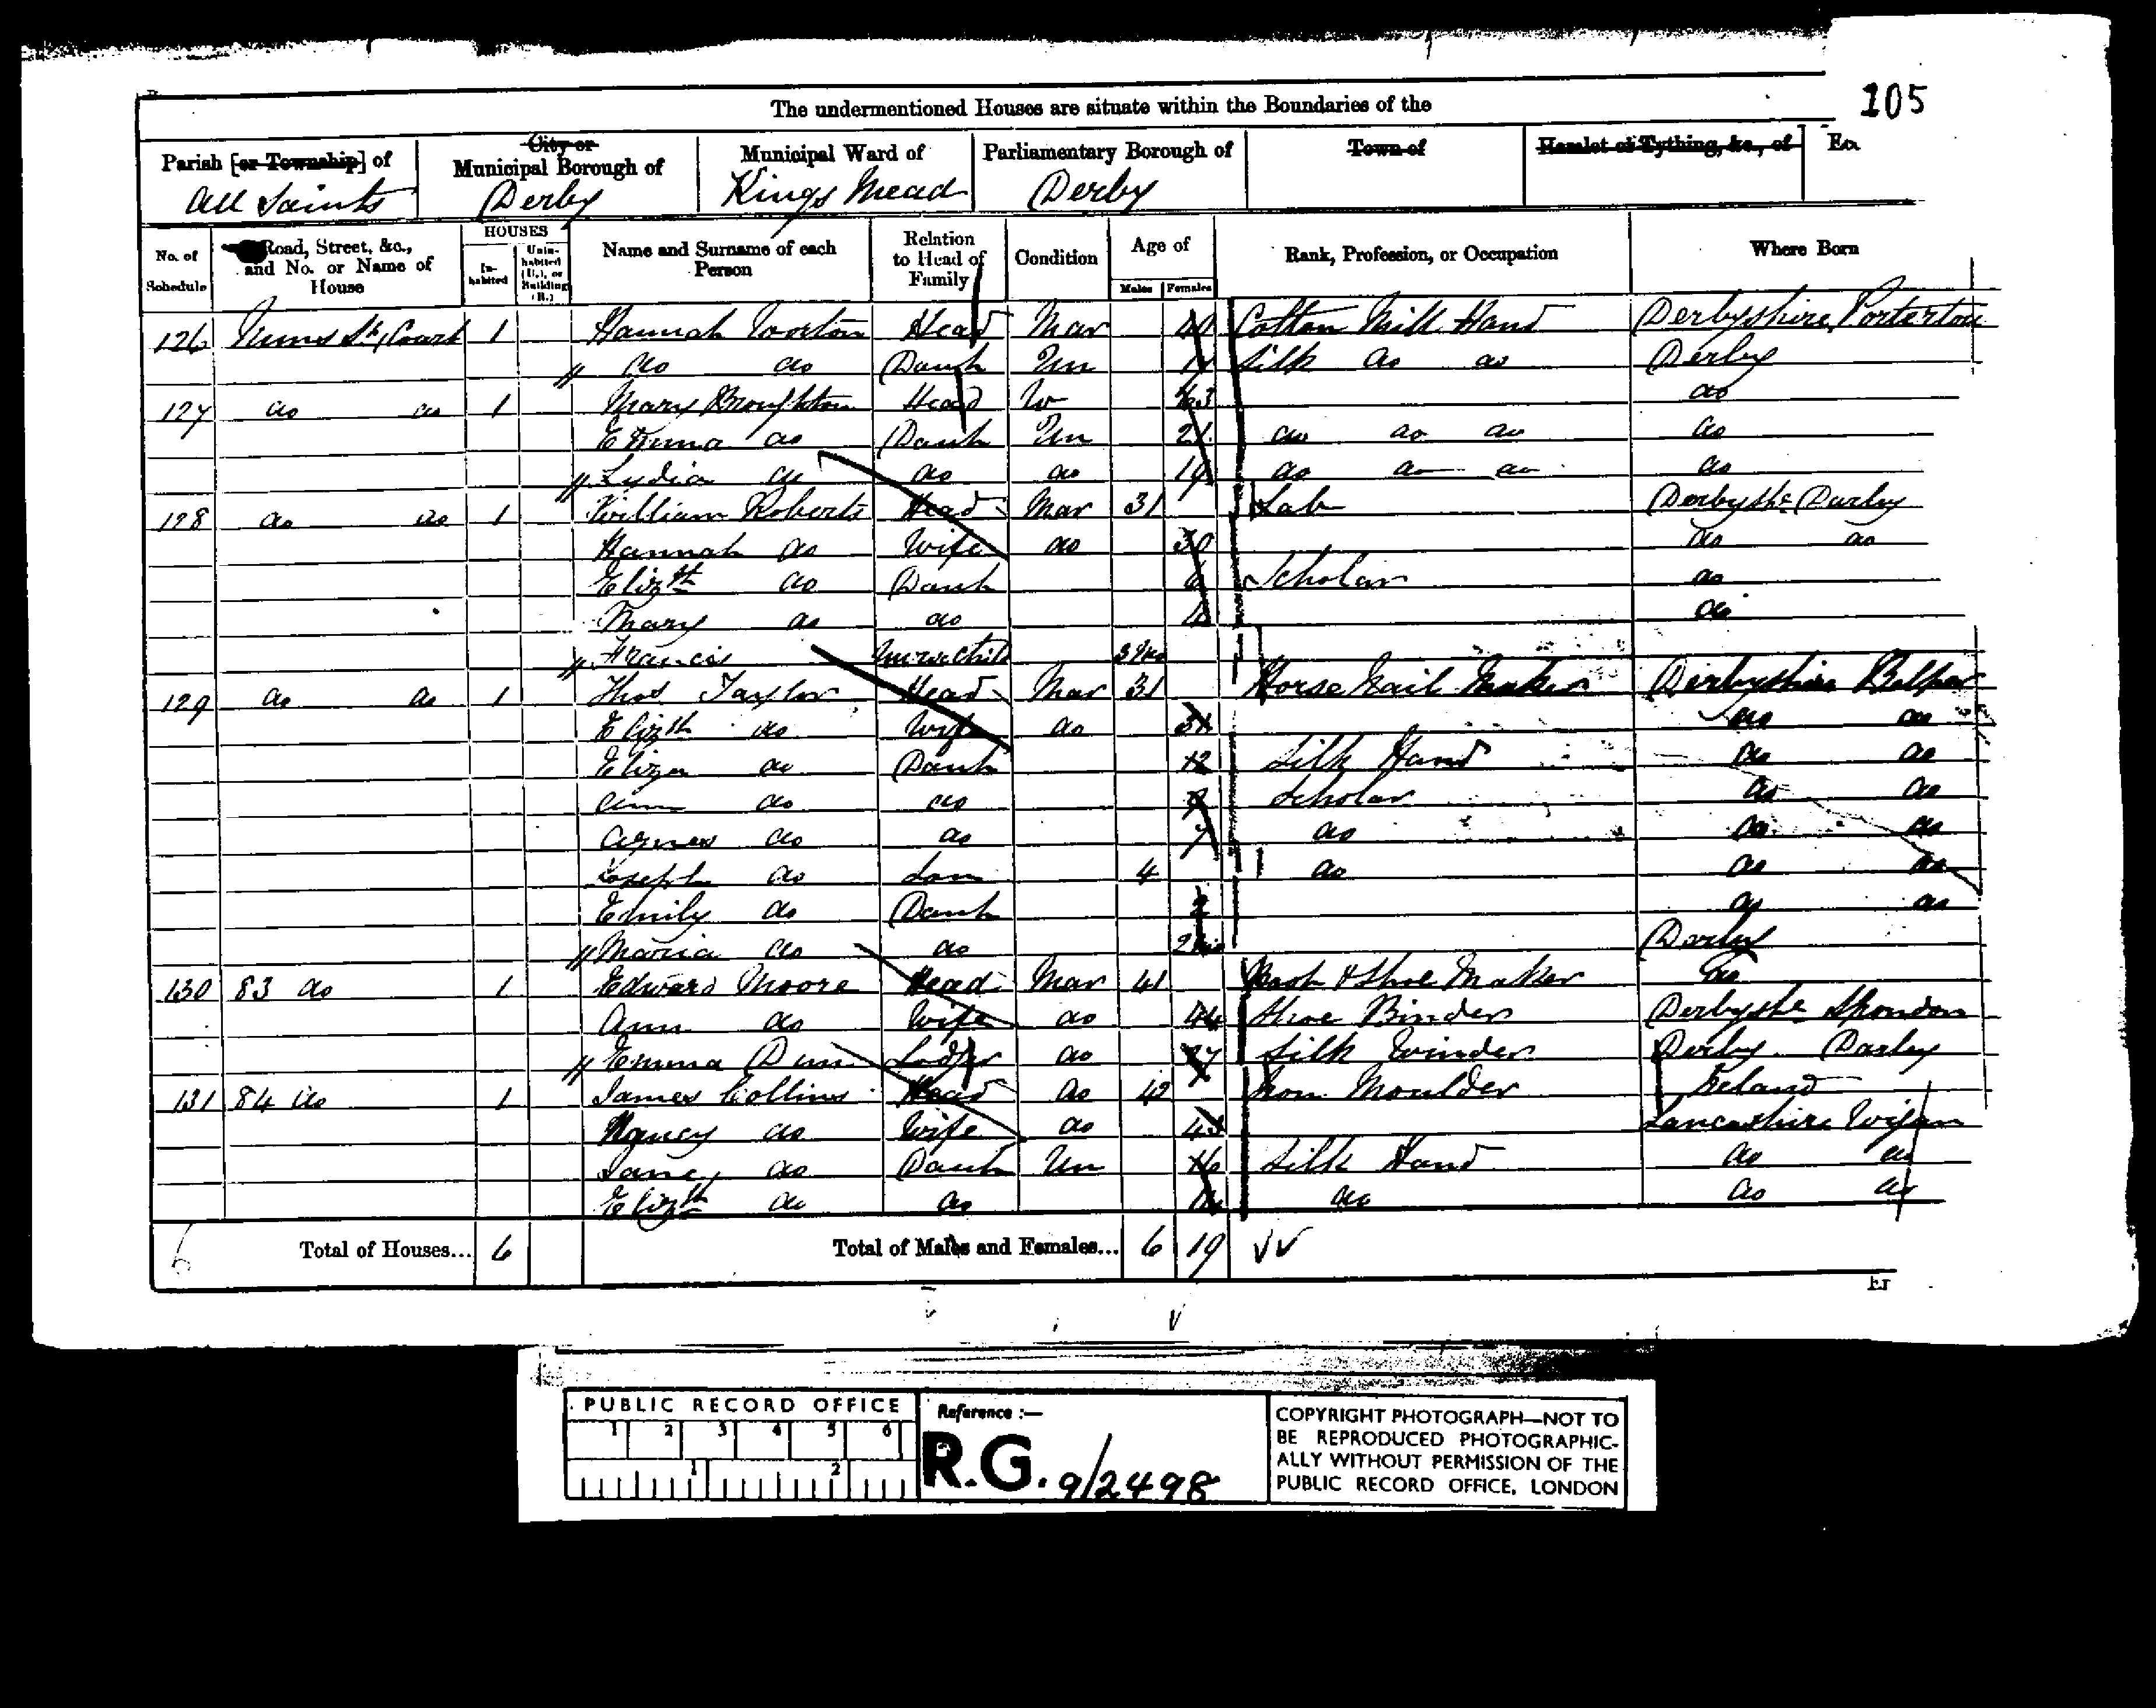 105
The undermentioned Houses are situate within the Boundaries of the
Parish [or Township] of City or Municipal Borough of Municipal Ward of Parliamentary Borough of Town of Hamlet or Tything, &c., of
All Saints Derby Kings Mead Derby
No. of Schedule Road, Street, &c., and No. or Name of House HOUSES Inhabited Uninhabited (U.), or Building (B.) Name and Surname of each Person Relation to Head of Family Condition Age of Males Females Rank, Profession, or Occupation Where Born
126 Nuns St, Court 1 Hannah Head Mar Cotton Mill Hand Derbyshire
do do Daur Un Silk do do Derby
127 do do 1 Mary Broughton Head W 63 do
Emma do Daur Un 21 do do do do
Lydia do do do 19 do do do do
128 do do 1 William Roberts Head Mar 31 Lab Derbyshe Darley
Hannah do Wife do 30 do do
Elizth do Daur 6 Scholar do
Mary do do do
Francis Nurse Child 3 Mo
129 do do 1 Thos Taylor Head Mar 31 Horse Nail Maker Derbyshire Belper
Elizth do Wife do 31 do do
Eliza do Daur 12 Silk Hand do do
Ann do do Scholar do do
Agnes do do 7 do do do
Joseph do Son 4 do do do
Emily do Daur 2 do do
Maria do do Derby
130 83 do 1 Edward Moore Head Mar 41 Boot & Shoe Maker do
Ann do Wife do 44 Shoe Binder Derbyshe Spondon
Emma Dun Lodger do 27 Silk Winder Derby Darley
131 84 do 1 James Collins Head do 42 Iron Moulder Ireland
Nancy do Wife do 43 Lancashire Wigan
Jane do Daur Un 16 Silk Hand do do
Elizth do do 14 do do do
6 Total of Houses... 6 Total of Males and Females... 6 19
PUBLIC RECORD OFFICE
1 2 3 4 5 6
1 2
Reference :—
R.G. 9/2498
COPYRIGHT PHOTOGRAPH—NOT TO
BE REPRODUCED PHOTOGRAPHIC-
ALLY WITHOUT PERMISSION OF THE
PUBLIC RECORD OFFICE, LONDON